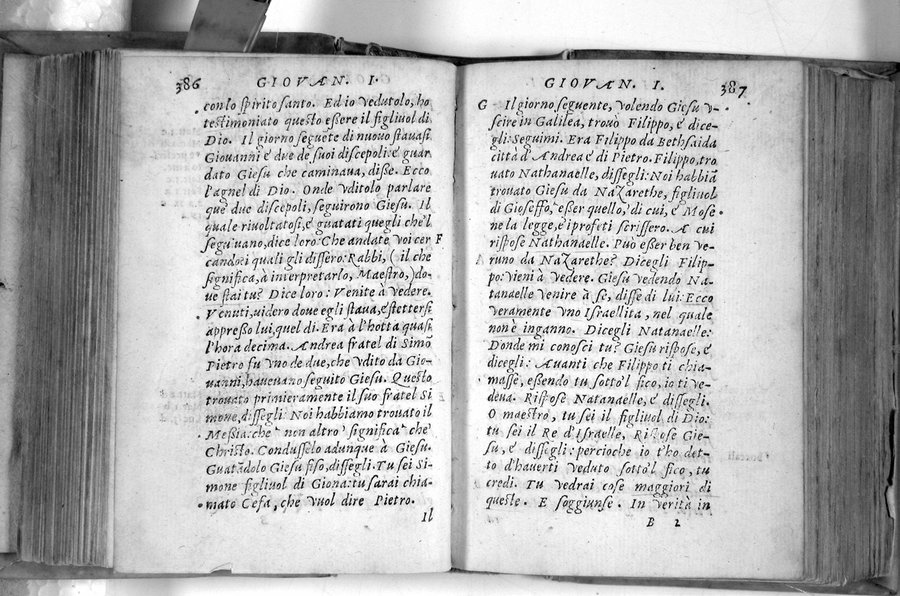 386
GIOVAN. I.
con lo spirito santo. Ed io vedutolo, ho
testimoniato questo essere il figliuol di
Dio. Il giorno seguẽte di nuovo stavasi
Giovanni è due de suoi discepoli: è guar
dato Giesu che caminaua, disse. Ecco
l'agnel di Dio. Onde vditolo parlare
que due discepoli, seguirono Giesu. Il
quale riuoltatosi, è guatati quegli che'l
seguiuano, dice loro: Che andate voi cer
cando: ei quali gli dissero: Rabbi, (il che
significa, à interpretarlo, Maestro,) do-
ue stai tu? Dice loro: Venite à vedere.
Venuti, uidero doue egli staua, è stettersi
appresso lui, quel di. Era à l'hotta quasi
l'hora decima. Andrea fratel di Simõ
Pietro fu vno de due, che vdito da Gio-
uanni, haueuano seguito Giesu. Questo
trouato primieramente il suo fratel Si
mone, dissegli: Noi habbiamo trouato il
Messia: che non altro significa che
Christo. Condusselo adunque à Giesu.
Guatãdolo Giesu fiso, dissegli. Tu sei Si-
mone figliuol di Giona: tu sarai chia-
mato Cefa, che vuol dire Pietro.
Il
F
GIOVAN. I.
387
G Il giorno seguente, volendo Giesu v-
scire in Galilea, trouò Filippo, è dice-
gli: Seguimi. Era Filippo da Bethsaida
città d'Andrea è di Pietro. Filippo, tro
uato Nathanaelle, dissegli: Noi habbiã
trouato Giesu da Nazarethe, figliuol
di Gioseffo, esser quello, di cui, è Mose
ne la legge, è i profeti scrissero. A cui
rispose Nathanaelle. Può esser ben ve-
runo da Nazarethe? Dicegli Filip-
po: vieni à vedere. Giesu vedendo Na-
tanaelle venire à se, disse di lui: Ecco
veramente vno Israellita, nel quale
non è inganno. Dicegli Natanaelle:
Donde mi conosci tu? Giesu rispose, è
dicegli: Auanti che Filippo ti chia-
masse, essendo tu sotto'l fico, io ti ve-
deua. Rispose Natanaelle, è dissegli.
O maestro, tu sei il figliuol di Dio:
tu sei il Re d'Israelle, Rispose Gie-
su, è dissegli: percioche io t'ho det-
to d'hauerti veduto sotto'l fico, tu
credi. Tu vedrai cose maggiori di
queste. E soggiunse. In verità in
B 2